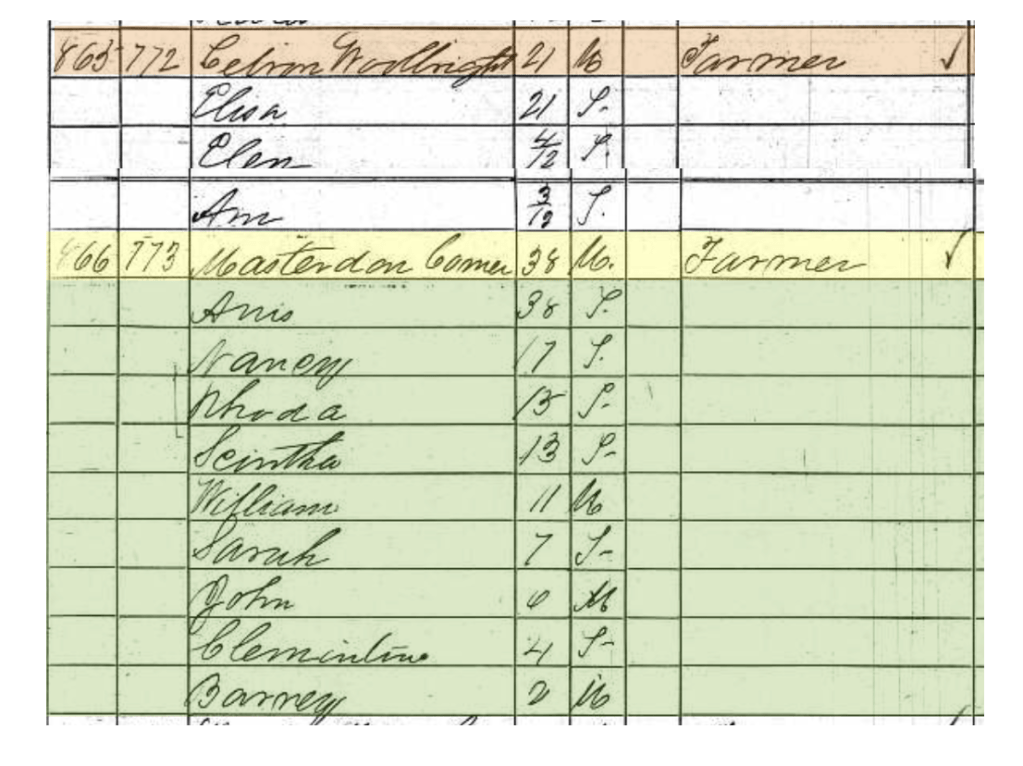 772 Woolbright 21 M Farmer
Elisa 21 F-
Elen 4/12 F.
Ann 3/12 F.
466 773 Masterdon Comer 38 M. Farmer
Anis 38 F.
Nancy 17 F.
Rhoda 15 F-
Scintha 13 F-
William 11 M
Sarah 7 F-
John 6 M
Clementine 4 F-
Barney 2 M